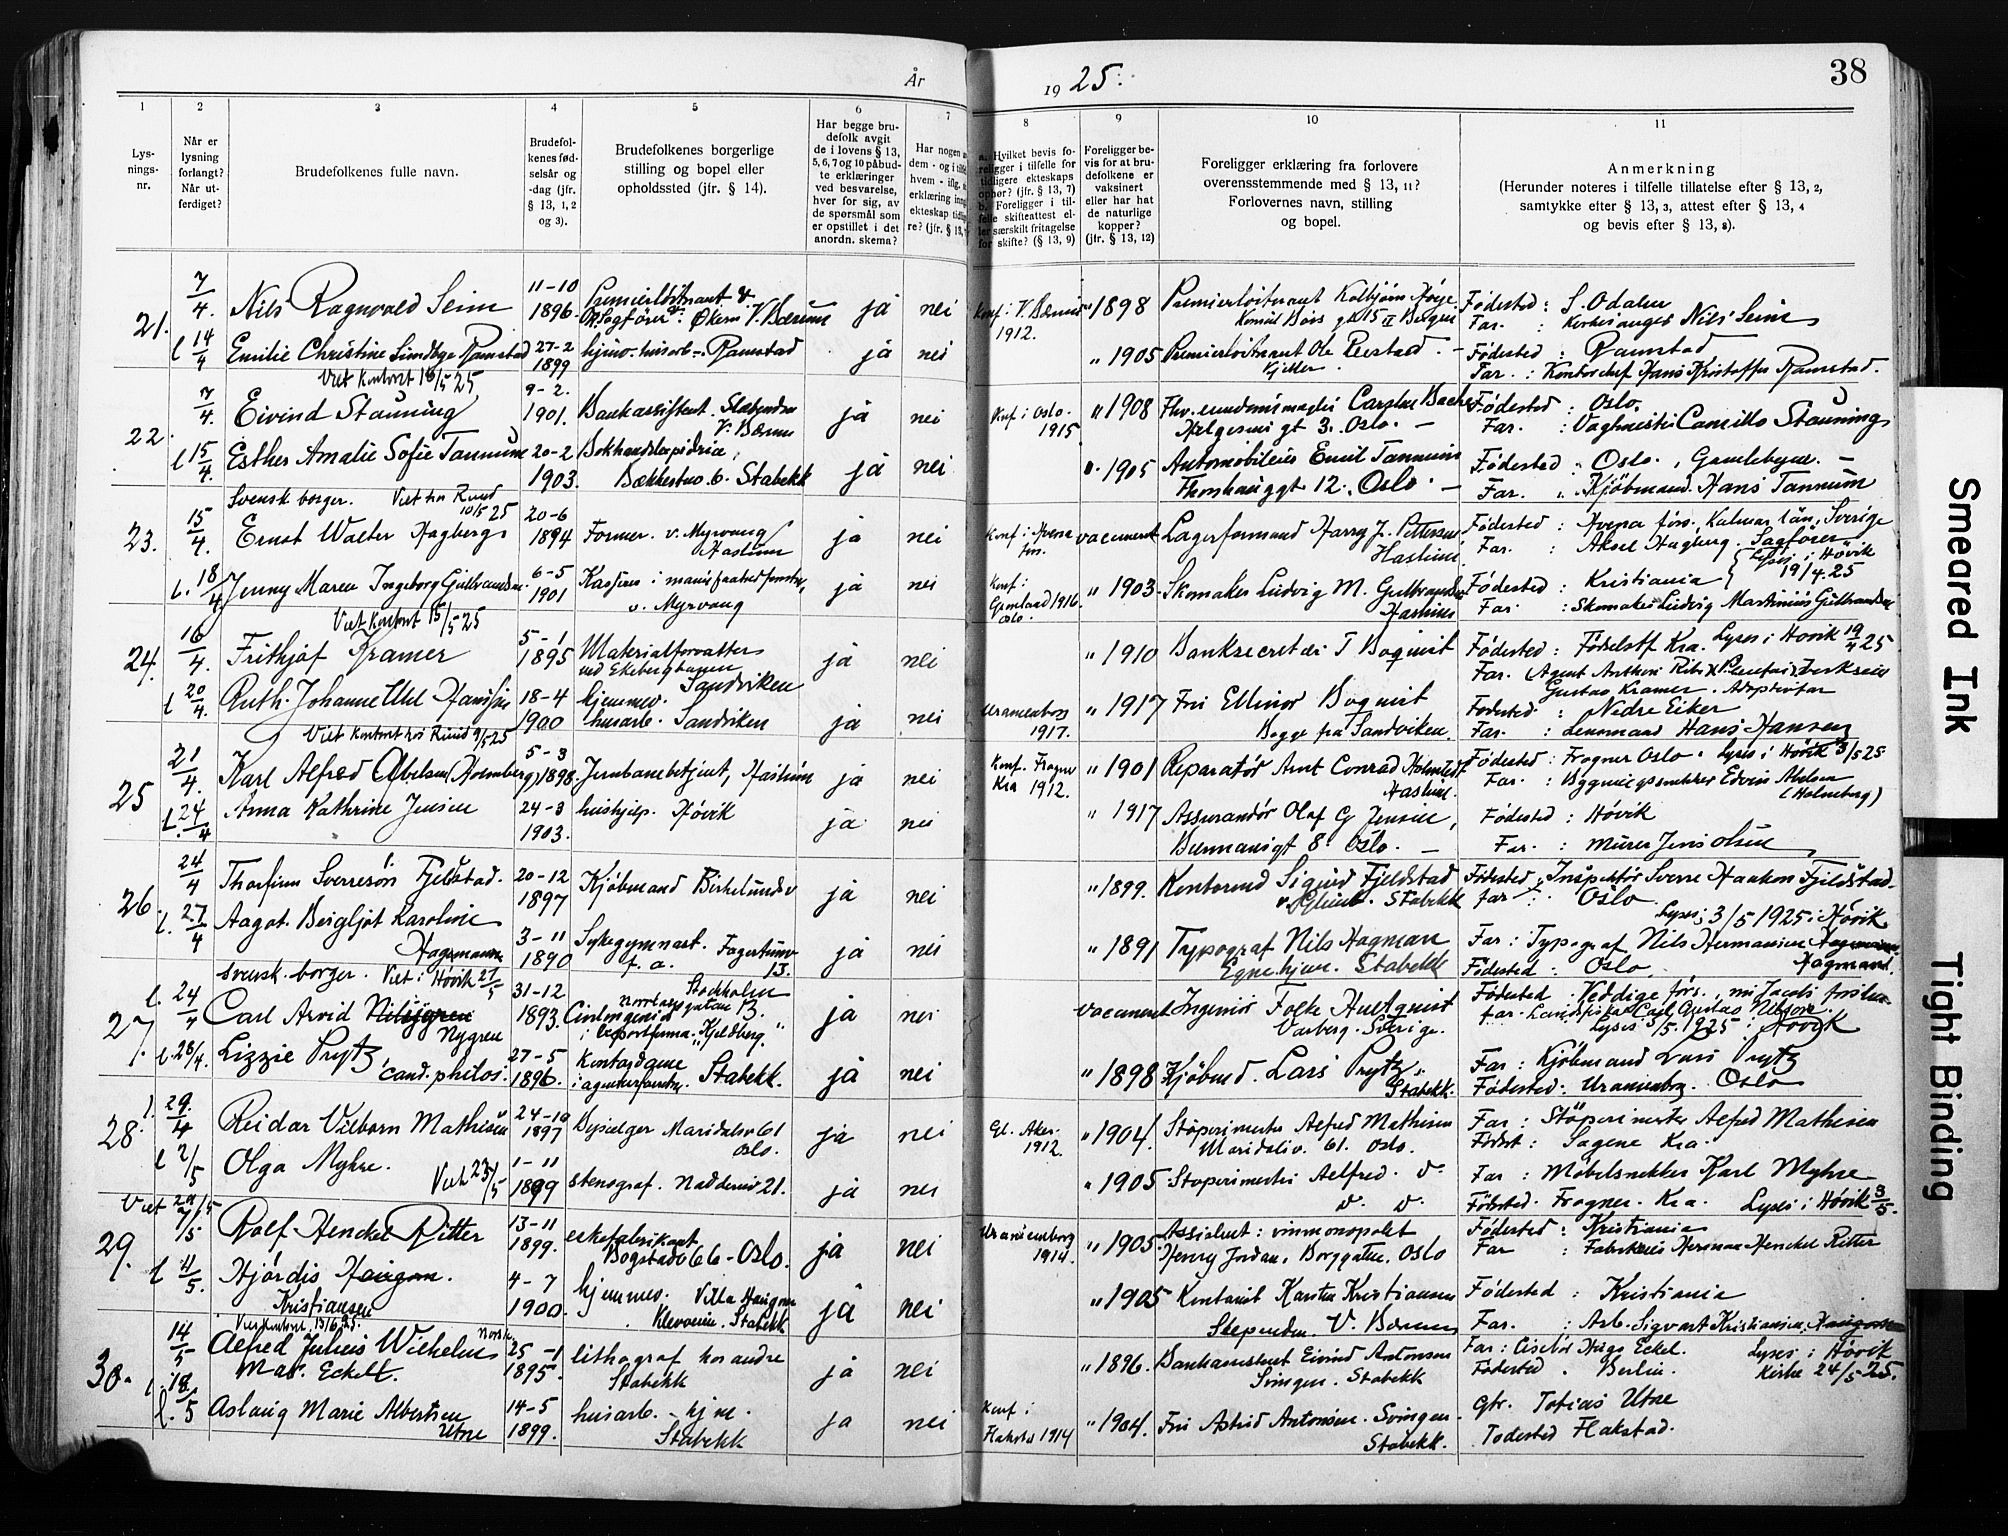 År
19 25.
38
1
2
3
4
5
6
7
8
9
10
11
Lys-
nings-
nr.
Når er
lysning
forlangt?
Når ut-
ferdiget?
Brudefolkenes fulle navn.
Brudefol-
kenes fød-
selsår og
-dag (jfr.
§ 13, 1, 2
og 3).
Brudefolkenes borgerlige
stilling og bopel eller
opholdssted (jfr. § 14).
Har begge bru-
defolk avgit
de i lovens § 13,
5, 6, 7 og 10 påbud-
te erklæringer
ved besvarelse,
hver for sig, av
de spørsmål som
er opstillet i det
anordn. skema?
Har nogen
dem - og i
hvem - iflg.
erklæring inng
ekteskap tidlig
re? (jfr. § 13,
a. Hvilket bevis fo-
religger i tilfelle for
tidligere ekteskaps
ophør? (jfr. § 13, 7)
b. Foreligger i til-
felle skifteattest el-
ler særskilt fritagelse
for skifte? (§ 13, 9)
Foreligger be-
vis for at bru-
defolkene er
vaksinert
eller har hat
de naturlige
kopper?
(jfr. § 13, 12)
Foreligger erklæring fra forlovere
overensstemmende med § 13, 11?
Forlovernes navn, stilling
og bopel.
Anmerkning
(Herunder noteres i tilfelle tillatelse efter § 13, 2,
samtykke efter § 13, 3, attest efter § 13, 4
og bevis efter § 13, 8).
21. 7/4. Nils Ragnvald Seim 11-10 1896. Premierløitnant & Økern V. Bærum ja nei Konf. i V. Bærum 1912. " 1898 Premierløitnant Kolbjørn Høye Bergen Fødested : S. Odalen
Far. : Kirkesanger Nils Seim
l 14/4 Emilie Christine Lindbye Ramstad 27-2 1899 hjmv. husarb. Ramstad ja nei " 1905 Premierløitnant Ole Fødested : Ramstad
Far. : Kontorchef Hans Kristoffer Ramstad.
Viet kontoret 16/5 25
22. 7/4. Eivind Stauning 9-2. 1901. Bankassistent. Slæbenden V. Bærum ja nei Knf. i Oslo. 1915 " 1908 Carsten Backe
Helgesens gt 3. Oslo. — Fødested : Oslo.
Far. : Vaghmester Camillo Stauning
l 15/4. Esther Amalie Sofie Tannum 20-2 1903. Bokhandlerpidrice, Bækkestua 6. Stabekk ja nei 1905 Emil Tannum
Thorshauggt 12. Oslo. — Fødested : Oslo. , Gamlebyen. —
Far. : Kjøbmand. Hans Tannum
Svensk borger. Viet hos Ruud 10/5 25
23. 15/4. Ernst Walter Hagberg 20-6 1894 Former. v. Myrvang Haslum ja nei vaccineret Lagerformand Harry J. Pettersen
Haslum. Fødested : Kalmar län, Sverige
Far. : Aksel Hagberg. Sagfører
Lyses i Høvik 19/4.25
l. 18/4 Jenny Maren Ingeborg Gulbrandsen 6-5 1901 Kasserer v. Myrvang ja nei Konf. i Grønland 1916. Oslo. " 1903. Skomaker Ludvig M. Gulbrandsen
Haslum Fødested : Kristiania
Far. : Skomaker Ludvig Martinius Gulbrandsen
Viet kontoret 15/5 25
24. 16/4. Frithjof Kramer 5-1 1895 Materialforvalter ved Ekebergbanen Sandviken ja nei " 1910 Banksecretær T Boquist Fødested : Fødselstf Kra. Lyses i Høvik 19/4 25
Gustav Kramer. Adoptivfar
l 20/4. Ruth Johanne Uhl Hanssen 18-4 1900 hjemmev. husarb. Sandviken ja nei Uranienborg 1917. " 1917 Frk Ellinor Boquist
Begge fra Sandviken. Fødested : Nedre Eiker
Far. : Lensmand Hans Hansen
Viet kontoret hos Ruud 9/5 25
25 21/4. Karl Alfred Abelsen (Holmberg) 5-3 1898. Jernbanebetjent, Haslum ja nei Konf. Frogner Kra 1912. " 1901 Reparatør Arnt Conrad Holmstedt
Haslum. Fødested : Frogner Oslo. Lyses i Høvik 3/5 25
Far. : Bygningssnekker Edvin Abelsen
(Holmberg)
l. 24/4 Anna Kathrine Jensen 24-3 1903. hushjelp. Høvik ja nei " 1917 Assurandør Olaf G Jensen,
Oslo. — Fødested : Høvik
Far. : Murer Jens Olsen
26. 24/4 Thorfinn Sverresøn Fjeldstad. 20-12 1897 Kjøbmand Birkelundsv ja nei " 1899. Kontormd Sigurd Fjeldstad
Stabekk Fødested Inspektør Sverre Haakon Fjeldstad.
far : Oslo
Lyses 3/5 1925 i Høvik
l. 27/4 Aagot. Bergljot Karoline
Hagemann 3-11 1890 Sykegymnast. Fagertunv 13. ja nei " 1891 Typograf Nils Hagman
Egne hjem. Stabekk Far : Typograf Nils Hermansen
Hagmann.
Fødested : Oslo
Svensk. borger. Viet i Høvik 21/5
27. l. 24/4 Carl Arvid Nilsson
Nygren 31-12 1893. Civilingeniør Stockholm i Exportfirma "Kjellberg." ja nei vaccineret Ingeniør Folke Hultquist
Varberg - Sverige. Fødested. Veddige
far. Carl Gustav Nilsson
Lyses 3/5. 1925 i Høvik
l. 28/4. Lizzie Prytz,
cand. philos. 27-5 1896. Kontordame i agenturforretn. Stabekk. ja nei " 1898 Kjøbmd. Lars Prytz,
Stabekk. Far : Kjøbmand Lars Prytz
Fødested : Uranienbg. Oslo
28. l. 29/4 Reidar Vilborn Mathisen 24-10 1897 Maridalsv 61 Oslo. ja nei Gl. Aker. 1912. " 1904. Støperimester Alfred Mathisen
Maridalsv. 61. Oslo. Far : Støperimester Alfred Mathisen
Fødest : Sagene Kra.
l 2/5 Olga Myhre. Viet 23/5 1-11 1899 stenograf. Nadderud 21. ja nei " 1905 Støperimester Alfred. Do
Do Do Far : Møbelsnekker Karl Myhre
Fødested. Frogner. Kra. Lyses i Høvik 3/5.
Viet 20/5
29. 7/5 Rolf Henckel Ritter 13-11 1899. eskefabrikant Bogstadv 66 - Oslo. ja nei Uranienborg 1914. " 1905. Assistent : vinmonopolet
Henry Jordan, Borggaten, Oslo Fødested : Kristiania
Far : Fabrikeier Herman Henckel Ritter
l 11/5. Hjørdis Haugom.
Kristiansen 4-7 1900. hjemmev. Villa Haugom Stabekk ja nei " 1905 Kontorist Karsten Kristiansen
Slependen. V. Bærum Fødested : Kristiania
Far. : Arb. Sigvart Kristiansen, Haugom
Viet kontoret 13/6 25.
30. 14/5 Alfred Julius Wilhelm
Max. Eckelt. Norsk 25-1 1895. lithograf hos andre Stabekk ja nei " 1896. Bankassistent Eivind Antonsen
Svingen. Stabekk Far : Ciselør Hugo Eckel. Lyses i Høvik
Fødested. Berlin. Kirke 24/5 25.
l. 18/5 Aslaug Marie Albertsen
Utne 14-5 1899. husarb. hjm. Stabekk ja nei Konf i Hakstad 1914 " 1904. Fru Astrid Antonsen. Svingen
Stabekk. gbr. Tobias Utne
Fødested Hakstad.
Smeared Ink
Tight Binding